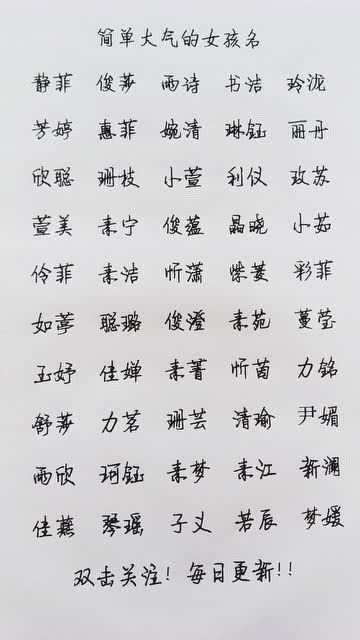 简单大气的女孩名
静菲 俊莎 雨诗 书洁 玲泷
芳婷 惠菲 婉清 琳钰 丽丹
欣聪 珊枝 小萱 利仪 玫苏
萱美 素宁 俊蕴 晶晓 小茹
伶菲 素洁 忻潇 紫菱 彩菲
如葶 聪璐 俊澄 素苑 蔓莹
玉妤 佳婵 素菁 忻茵 力铭
舒莎 力茗 珊芸 清瑜 尹媚
雨欣 珂钰 素梦 素江 新澜
佳蕊 琴瑶 子义 若辰 梦媛
双击关注! 每日更新!!